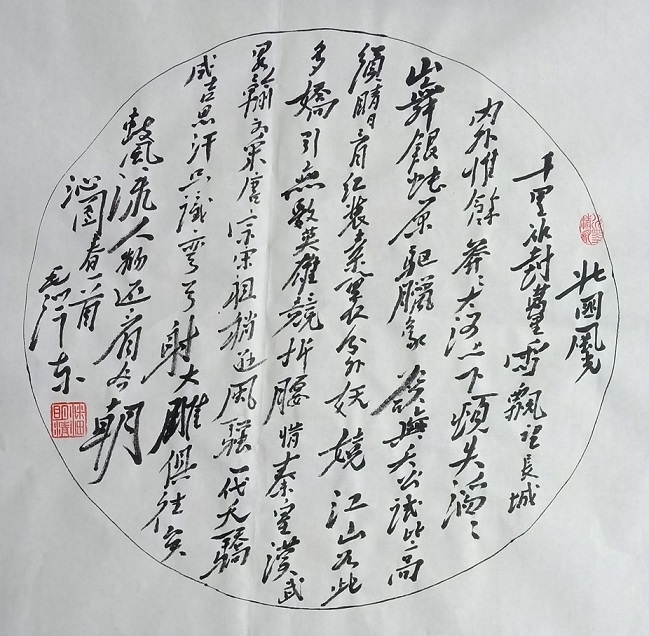 北国風光
千里冰封萬里雪飄望長城
内外惟餘莽々大河上下頓失滔々
山舞銀蛇原馳臘象欲與天公試比高
須晴日看红装素裹分外妖嬈江山如此
多嬌引無數英雄競折腰惜秦皇漢武
畧輸文采唐宗宋祖稍遜風騷一代天驕
成吉思汗只識彎弓射大雕俱往矣
數風流人物还看今朝
沁園春一首
毛泽东